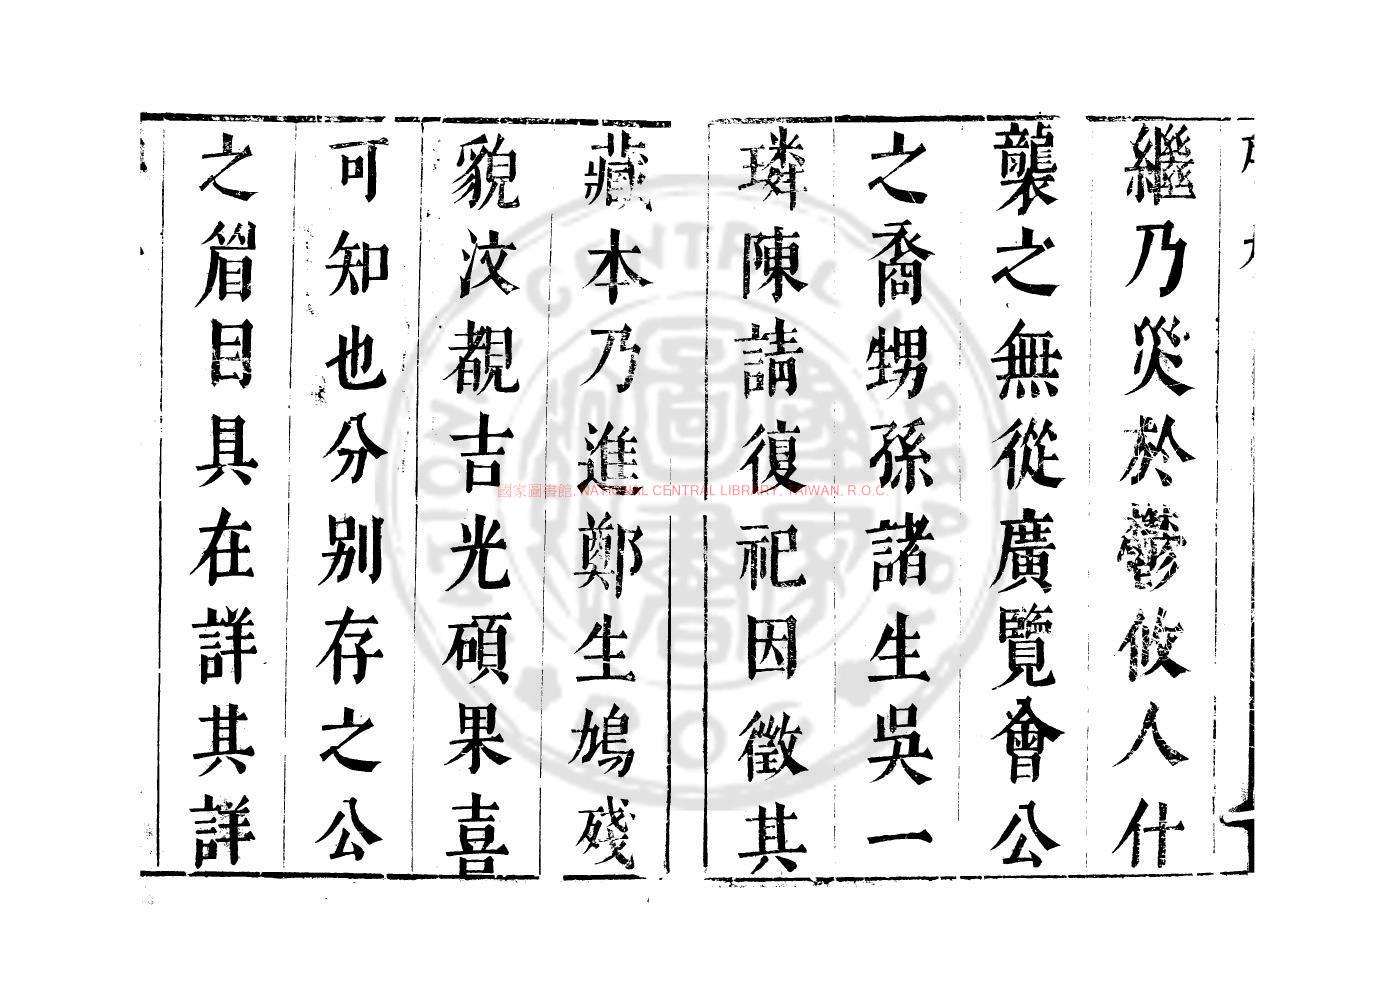 繼乃災於鬱攸人什
襲之無從廣覽會公
之裔甥孫諸生吳一
璘陳請復祀因徵其
藏本乃進鄭生鳩殘
貌汶覩吉光碩果喜
可知也分别存之公
之眉目具在詳其詳
國家圖書館, NATIONAL CENTRAL LIBRARY, TAIWAN, R.O.C.